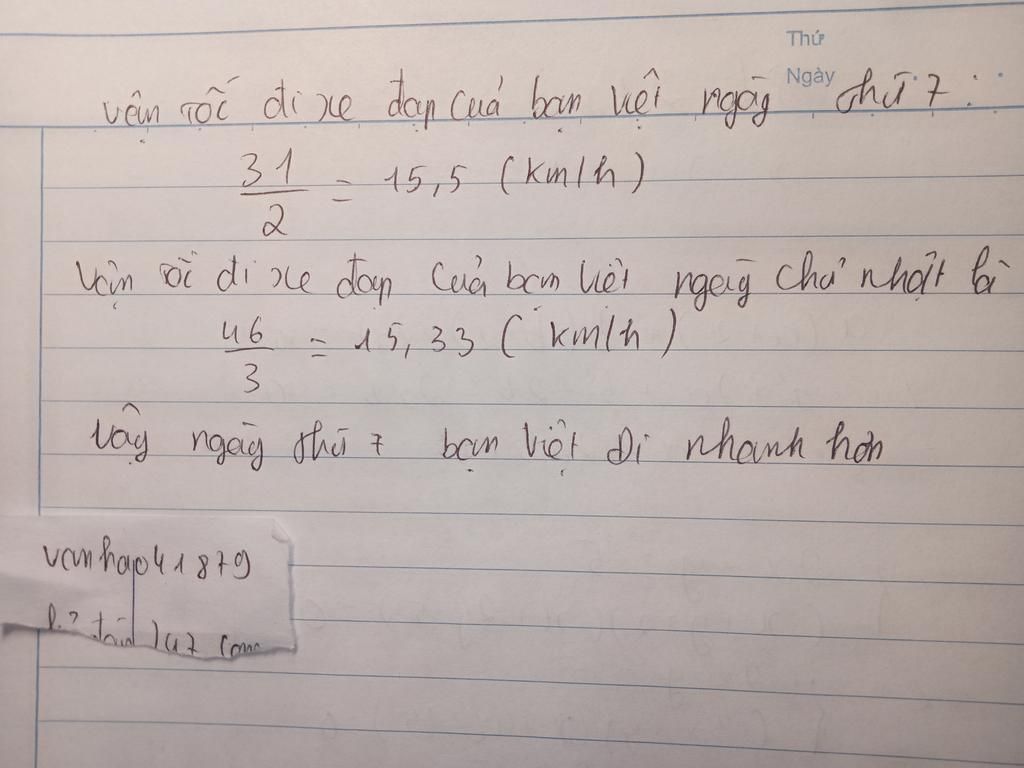 Thứ
Ngày
vận tốc đi xe đạp của bạn việt ngày thứ 7 :
31
2
= 15,5 (km/h)
vận tốc đi xe đạp của bạn việt ngày chủ nhật là
46
3
= 15,33 (km/h)
vậy ngày thứ 7 bạn việt đi nhanh hơn
vanhao41879
247 com